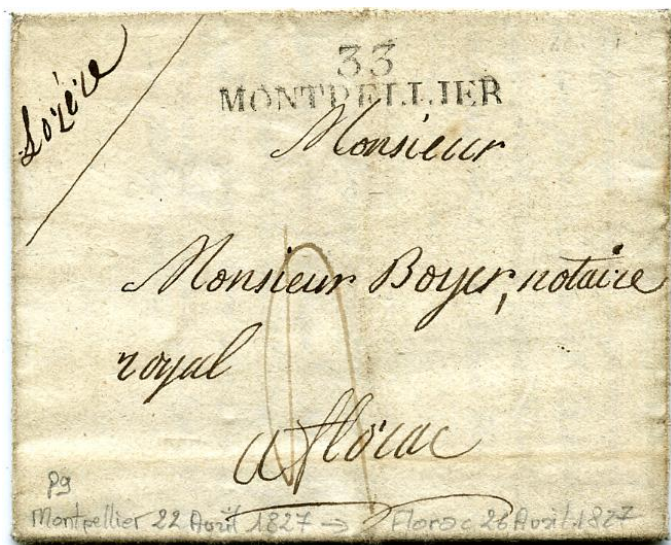 Lozère
33
MONTPELLIER
Monsieur
Monsieur Boyer, notaire
royal
a florac
Pg
Montpellier 22 Avril 1827 → Florac 26 Avril 1827